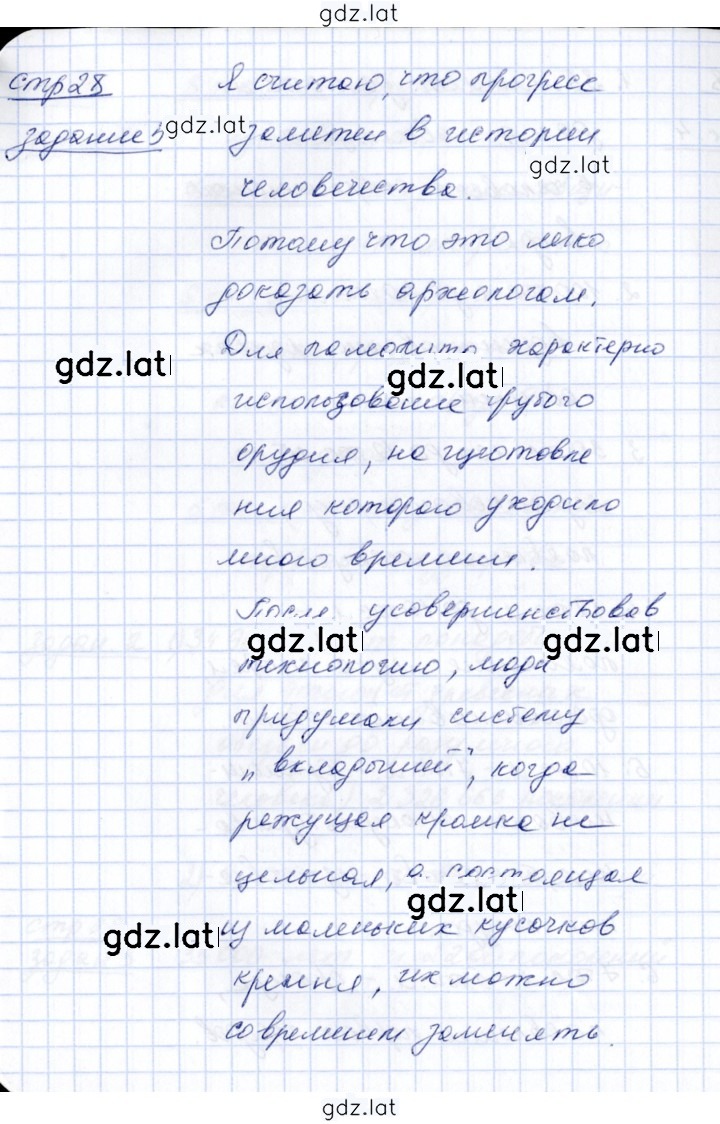 gdz.lat
стр 28 Я считаю, что прогресс
задание 5 gdz.lat заметен в истории
gdz.lat
человечества.
Потому что это легко
доказать археологам.
Для палеолита характерно
gdz.lat gdz.lat
использование грубого
орудия, на изготовле
ния которого уходило
много времени.
После усовершенствовав
gdz.lat gdz.lat
технологию, люди
придумали систему
„вкладышей", когда
режущая кромка не
цельная, а состоящая
gdz.lat
из маленьких кусочков
gdz.lat
кремня, их можно
со временем заменять.
gdz.lat